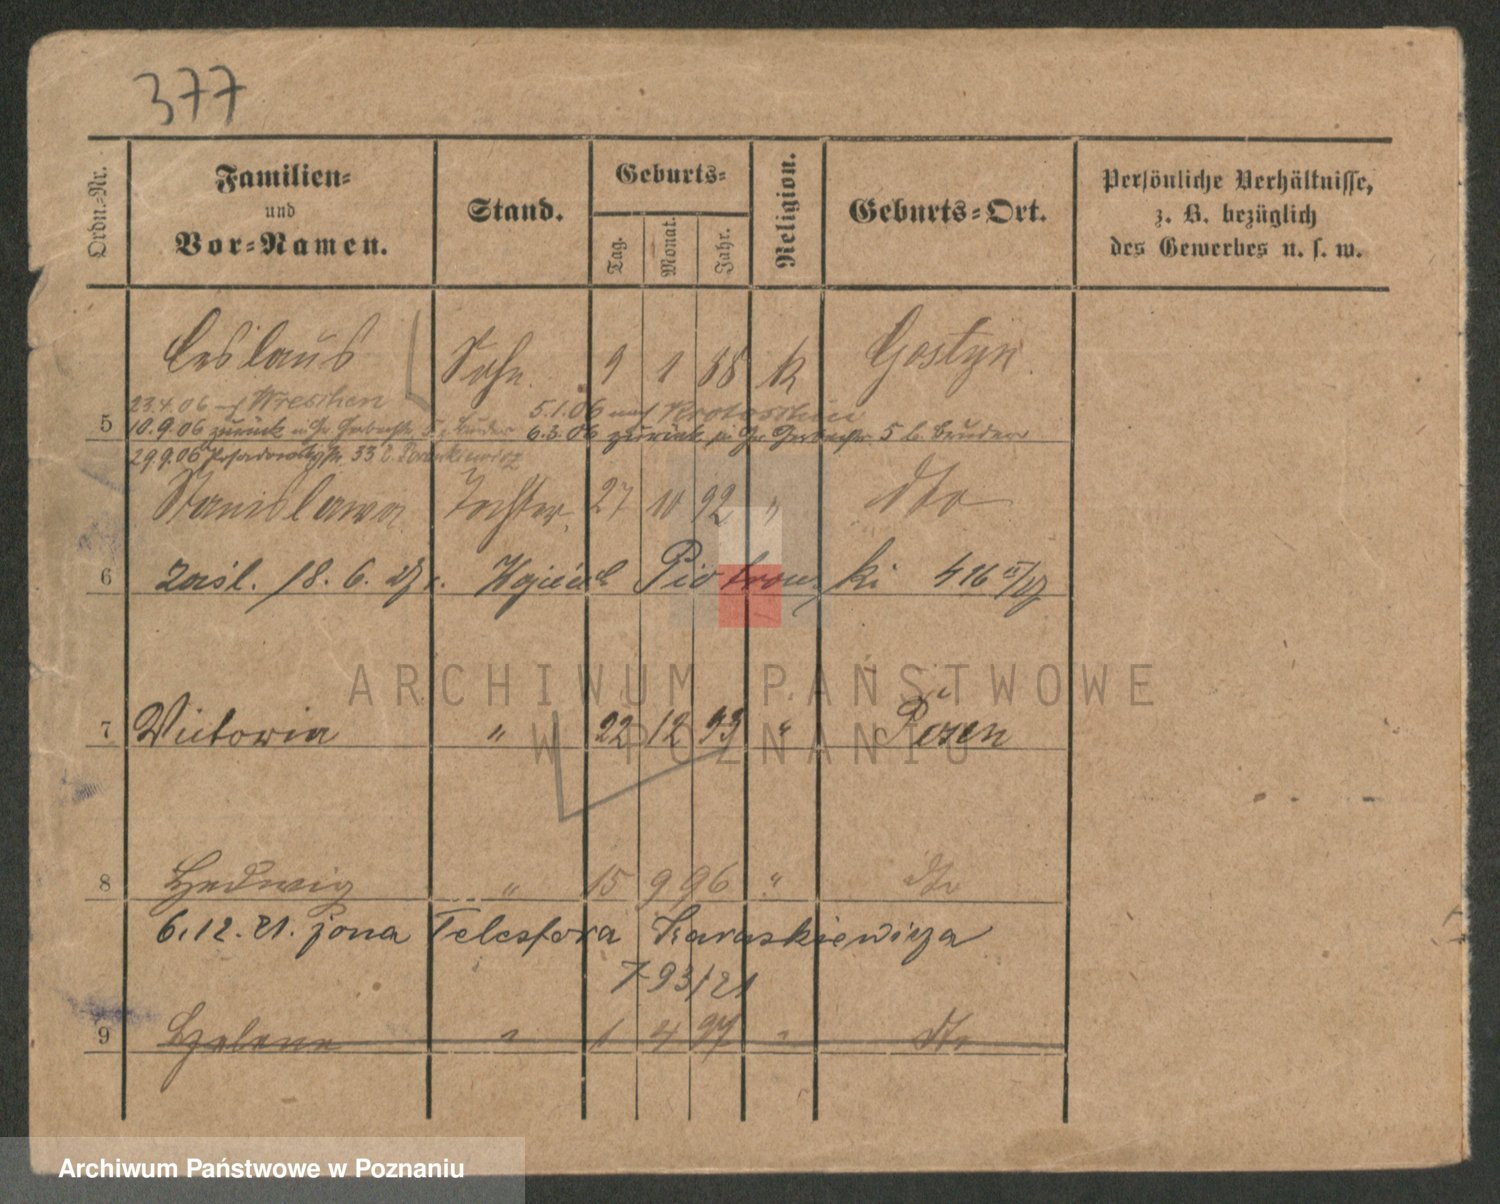 377
Ordn.-Nr.
Familien-
und
Vor-Namen.
Stand.
Geburts-
Tag.
Monat.
Jahr.
Religion.
Geburts-Ort.
Persönliche Verhältnisse,
z. B. bezüglich
des Gewerbes u. s. w.
Ceslaus Sohn 9 1 88 K Gostyn
23.4.06 Wreschen
5.1.06 auf Krotoschin
5 10.9.06 zurück 5 b. Bruder 6.3.06 zurück 5 b. Bruder
29.9.06 33
Stanislawa Tochter 27 10 92 " dto
6 zaśl. 18. 6. Piotrowski 416
7 Victoria " 22 12 93 " Posen
8 Hedwig " 15 9 96 " dto
6.12.21. żona Telesfora Karaskiewicza
7-93/21
9 Helene " 1 4 97 " dto
ARCHIWUM PAŃSTWOWE
W POZNANIU
Archiwum Państwowe w Poznaniu